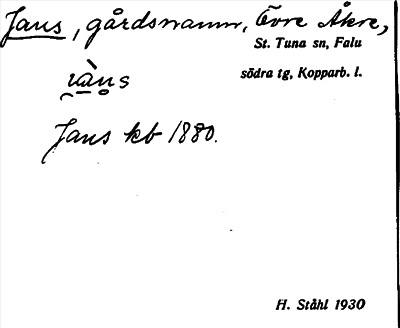 Jans, gårdsnamn, Övre Åkre,
St. Tuna sn, Falu
södra tg, Kopparb. l.
Jans kb 1880.
H. Ståhl 1930